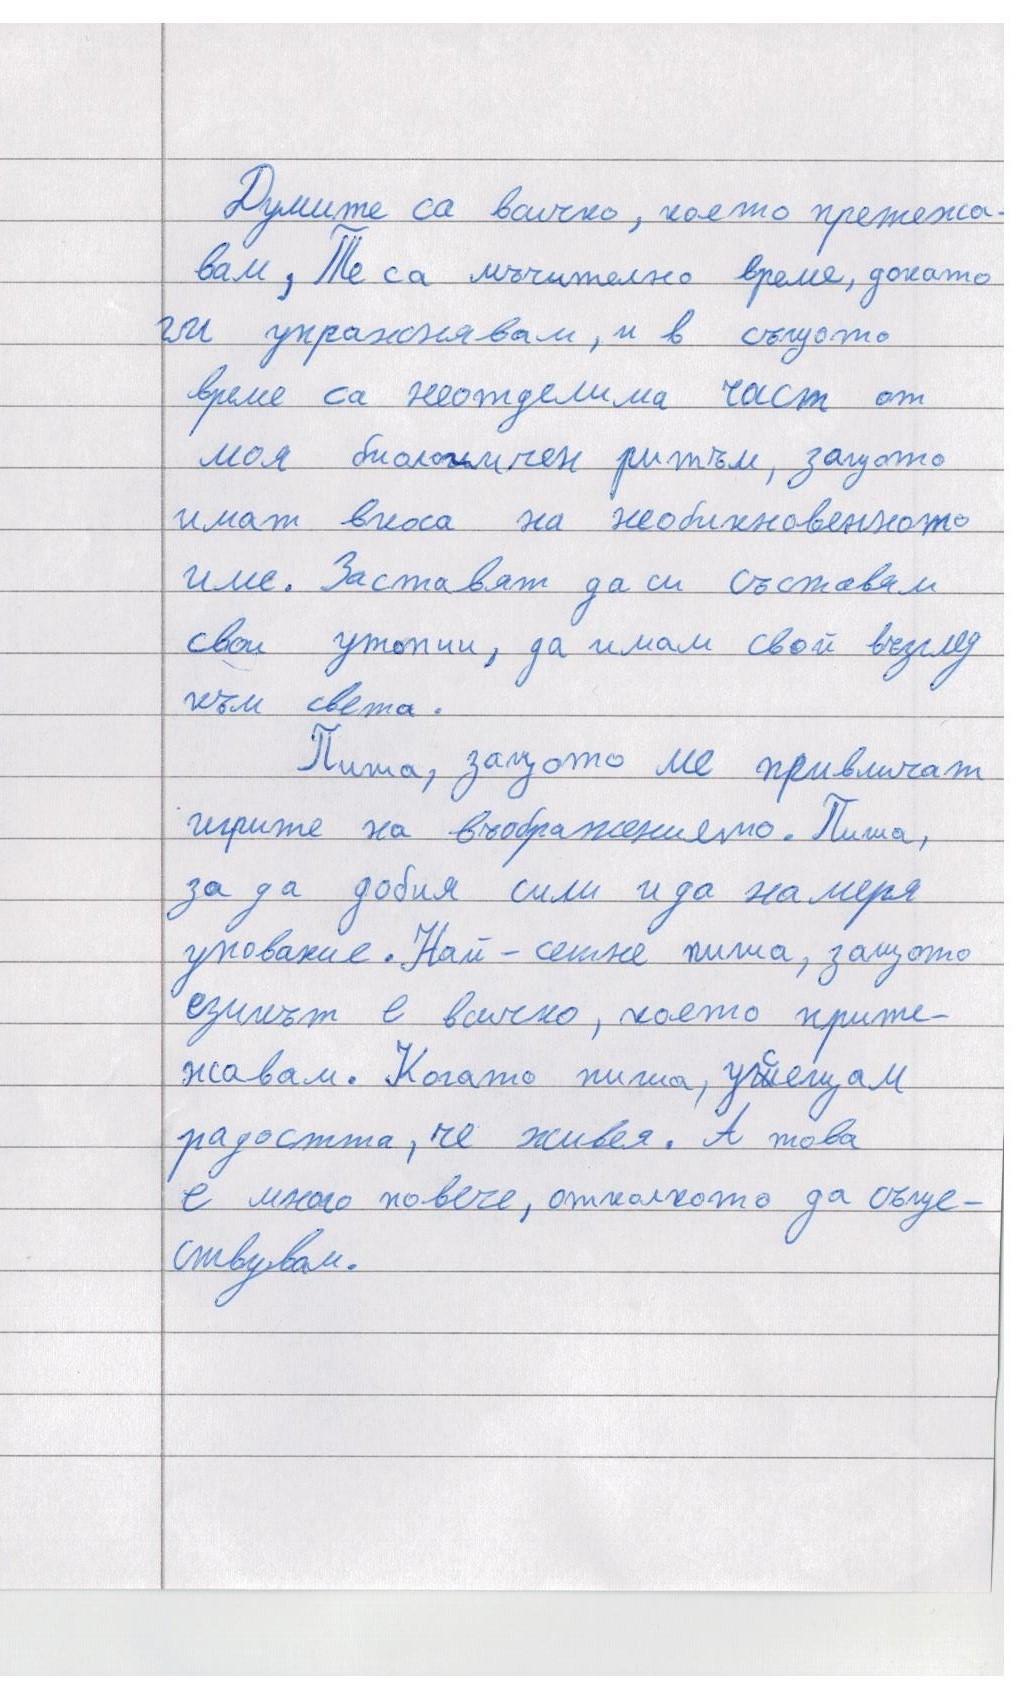 Думите са всичко, което претежа-
вам, Те са мъчително време, докато
ги упражнявам, и в същото
време са неотделима част от
моя биологичен ритъм, защото
имат вкоса на необикновенното
име. Заставят да си съставям
свои утопии, да имам свой възглед
към света.
Пиша, защото ме привличат
игрите на въображението. Пиша,
за да добия сили и да намеря
упование. Най-сетне пиша, защото
езикът е всичко, което прите-
жавам. Когато пиша, усещам
радостта, че живея. А това
е много повече, отколкото да съще-
ствувам.